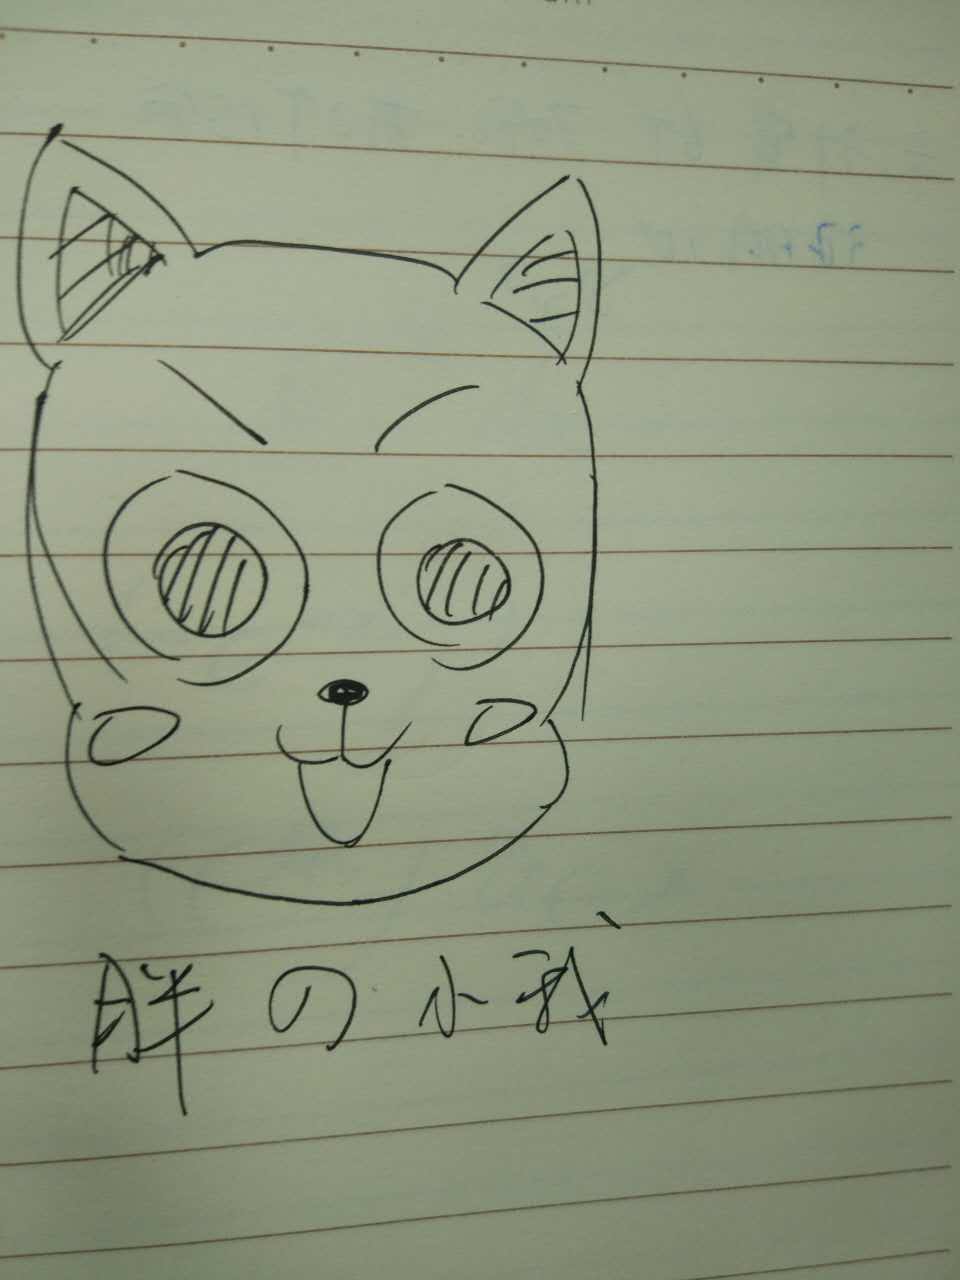 胖の小我